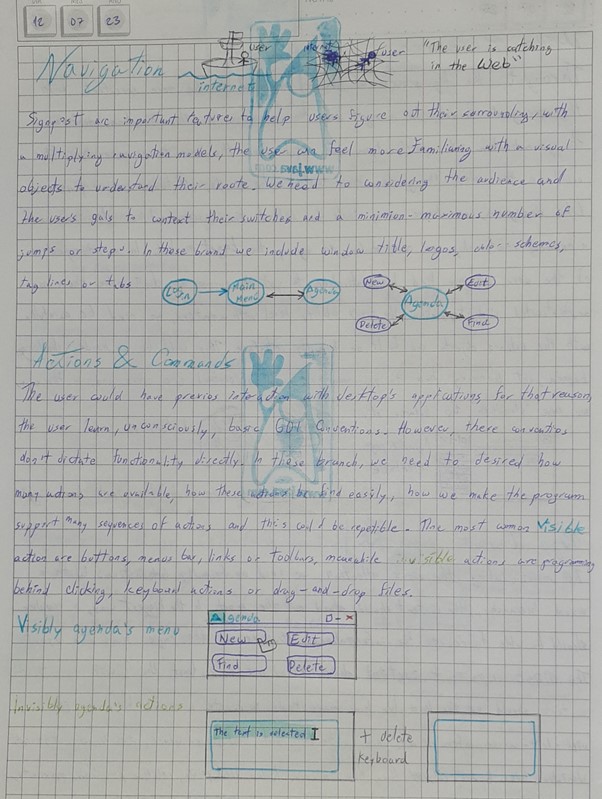 12 07 23
user
user
"The user is catching
in the Web"
Navigation
internet
Signpost are important features to help users figure out their surrounding, with
a multiplying navigation models, the user can feel more Familiaring with a visual
objects to understand their route. We need to considering the audience and
the user's gals to context their switches and a minimion-maximous number of
jumps or steps. In these brand we include window title, logos, color schemas,
tag lines or tabs
Login
Main
Menu
Agenda
New
Edit
Agenda
Delete
Find
Actions & Commands
The user could have previos interaction with desktop's applications, for that reason,
the user learn, unconsciously, basic GUI Conventions. However, there conventios
don't dictate functionality directly. In these branch, we need to desired how
many actions are available, how these actions be find easily, how we make the program
support many sequences of actions and this could be repetible. The most common Visible
action are bottons, menus bar, links or toolbars, meanwhile invisible actions are programing
behind clicking, keyboard actions or drag-and-drop files.
Visibly agenda's menu
Agenda
New
Edit
Find
Delete
Invisibly agenda's actions
The text is selected
+ delete
keyboard